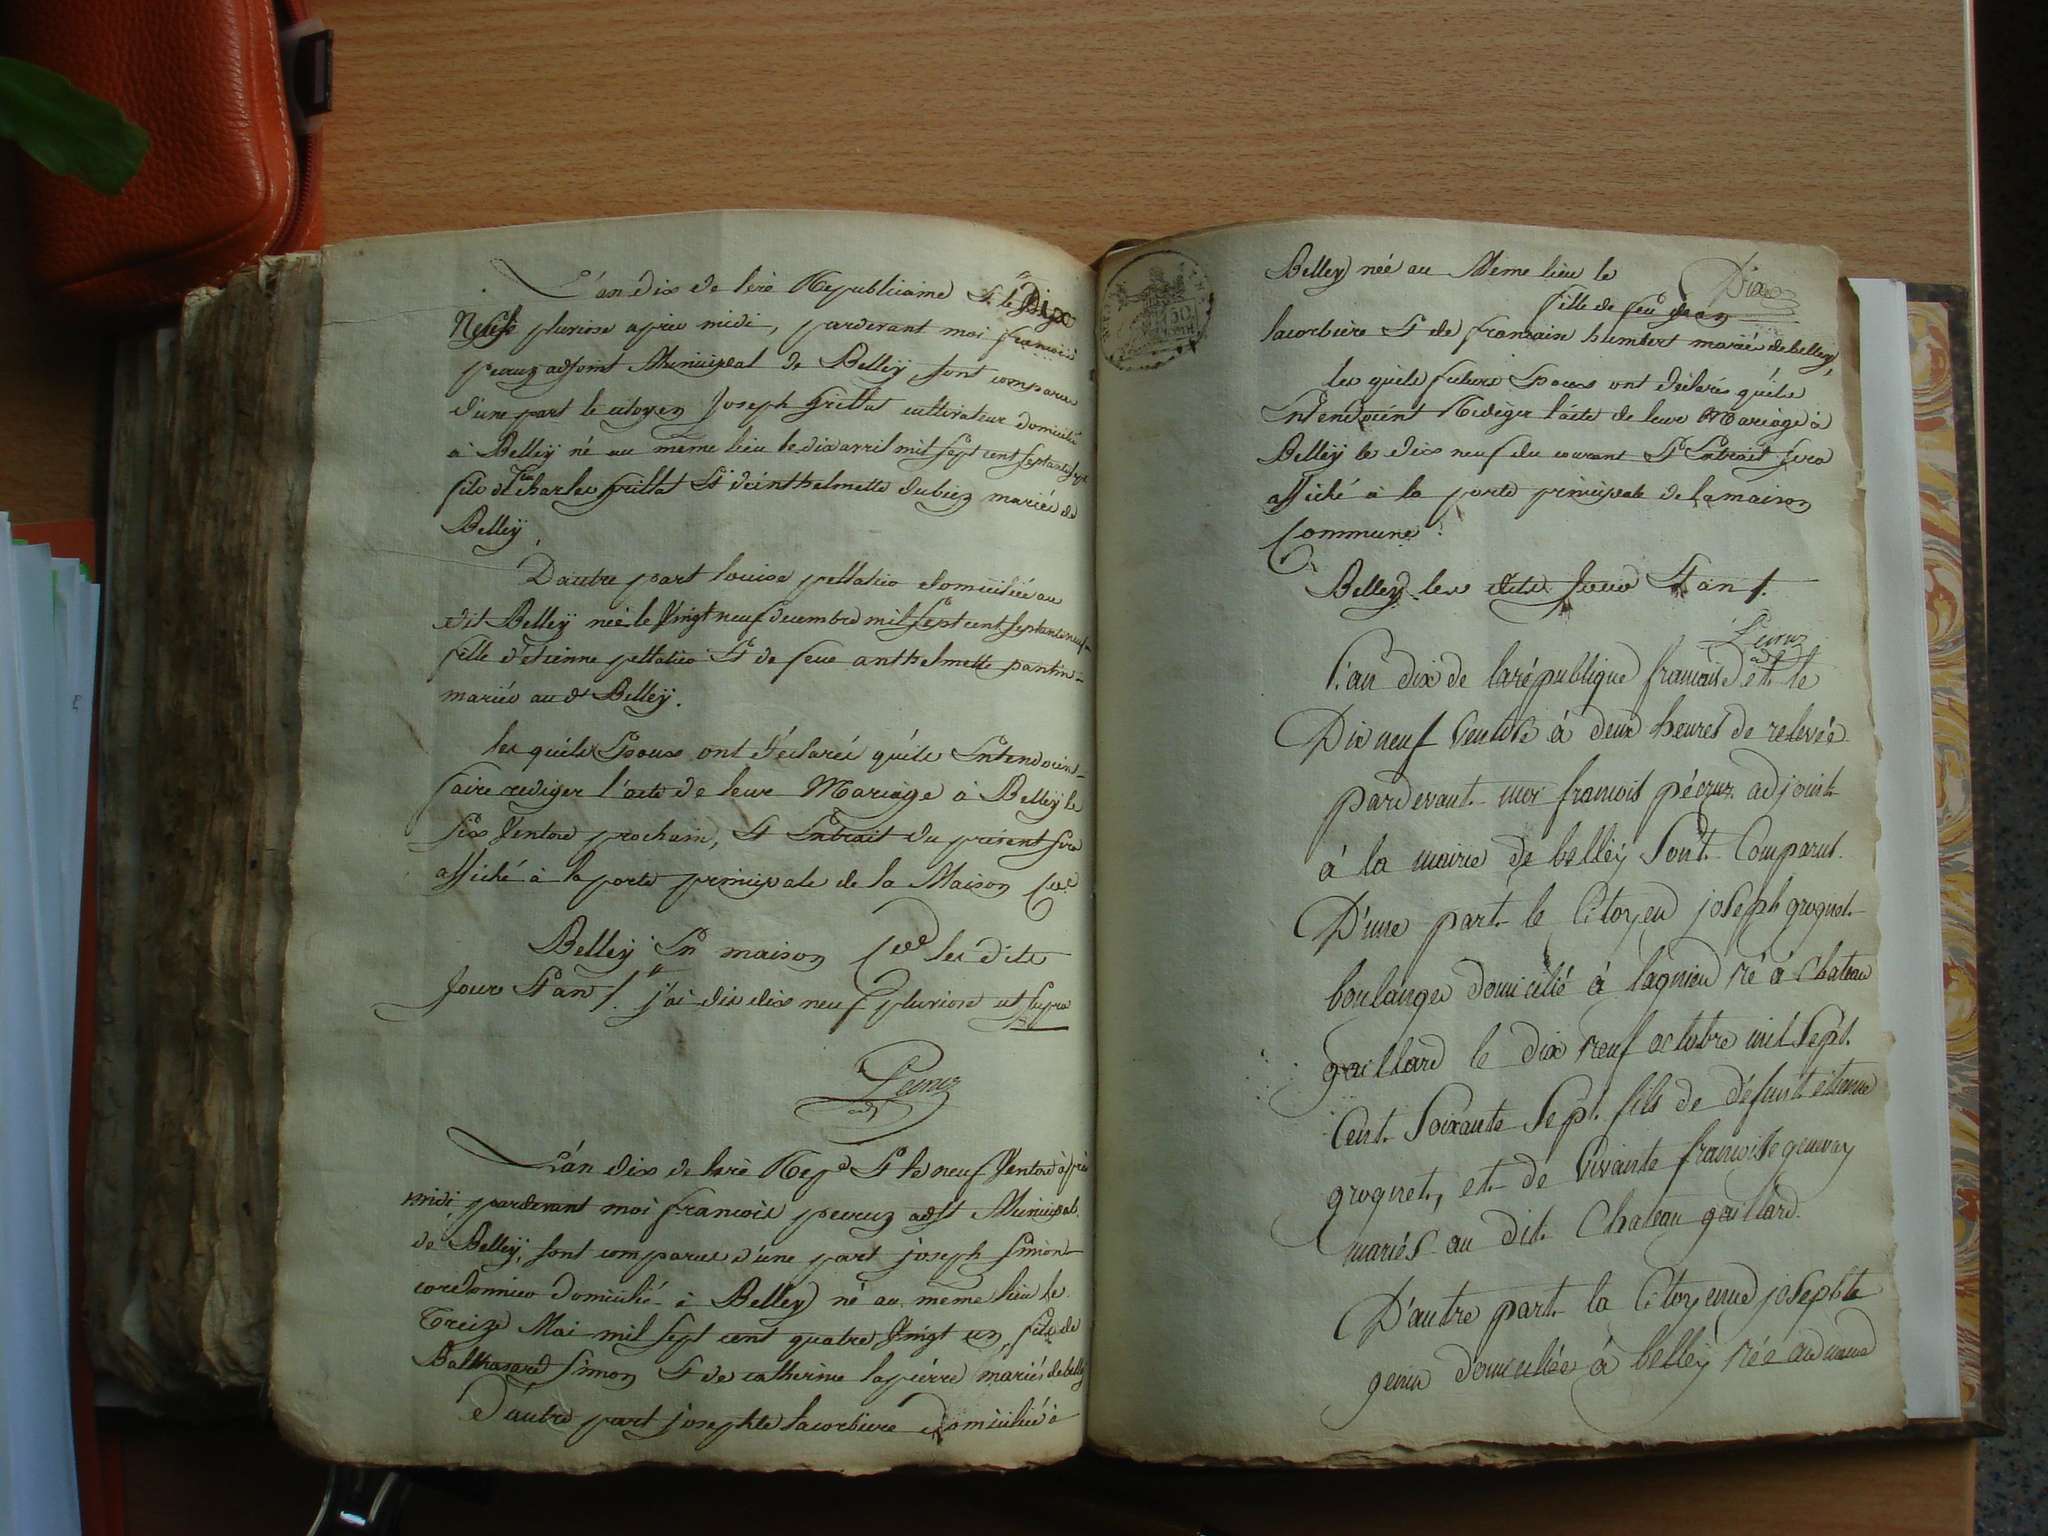 L'an dix de l'ère Républicaine & le Dix
Neuf pluviose après midi, pardevant moi francois
peruz adjoint Municipal de Belley, sont comparus
d'une part le citoyen Joseph Grillat cultivateur domicilié
à Belley né au même lieu le dix avril mil sept cent septante
fils de charles Grillat & d'anthelmette dubiez mariés de
Belley
D'autre part louise pellatio domiciliée au
dit Belley née le Vingt neuf decembre mil sept cent septante neuf
fille d'etienne pellatio & de feue anthelmette pantin
mariés au dt Belley.
les quels Epoux ont déclarés qu'ils Entendoient
faire rediger l'acte de leur Mariage à Belley le
six Ventose prochain, & Extrait du présent sera
affiché à la porte principale de la Maison Cne
Belley En maison Cne les dits
Jour & an /. j'ai dix dix neuf pluviose ut supra
Peruz
adjt
L'an dix de l'ère Repe & le neuf Ventose après
midi, pardevant moi francois peruz adjt Municipal
de Belley, sont comparus d'une part joseph simon
cordonnier domicilié à Belley né au même lieu le
Treize Mai mil sept cent quatre Vingt un, fils de
Balthasard simon & de catherine lapierre mariés de belley
D'autre part josephte lacorbiere domiciliée à
Belley née au Même lieu le
Dix
fille de feu jean
lacorbiere & de francoise humbert mariés de belley,
les quels futurs Epoux ont déclarés qu'ils
Entendoient Rediger l'acte de leur Mariage à
Belley le dix neuf du courant & Extrait sera
affiché à la porte principale de la maison
Commune
Belley les dits Jour & an /.
Peruz
L'an dix de la république francaise et le
Dix neuf Ventose à deux heures de relevée
pardevant moi francois péruz adjoint
à la mairie de belley sont Comparus
D'une part le Citoyen joseph groguet
boulanger domicilié à lagnieu né à Chateau
gaillard le dix neuf octobre mil sept
Cent soixante sept fils de défunt étienne
groguet, et de Vivante francoise genvray
mariés au dit Chateau gaillard.
D'autre part la Citoyenne josephte
genin domiciliée à belley née au même